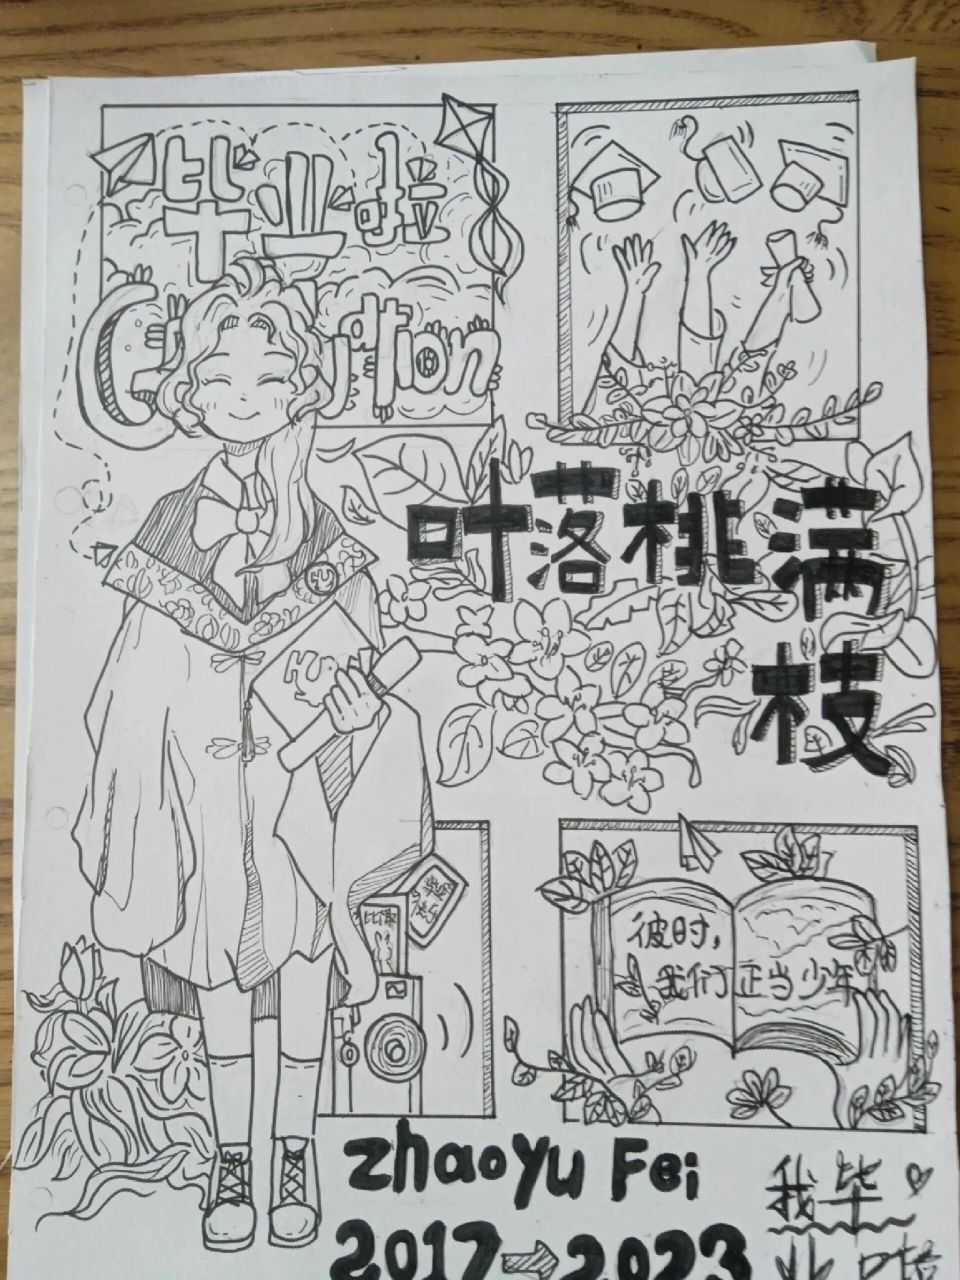 毕业啦
叶落桃满
枝
毕业
快乐
彼时,
我们正当少年
zhaoyu Fei
2017→2023
我毕
业啦